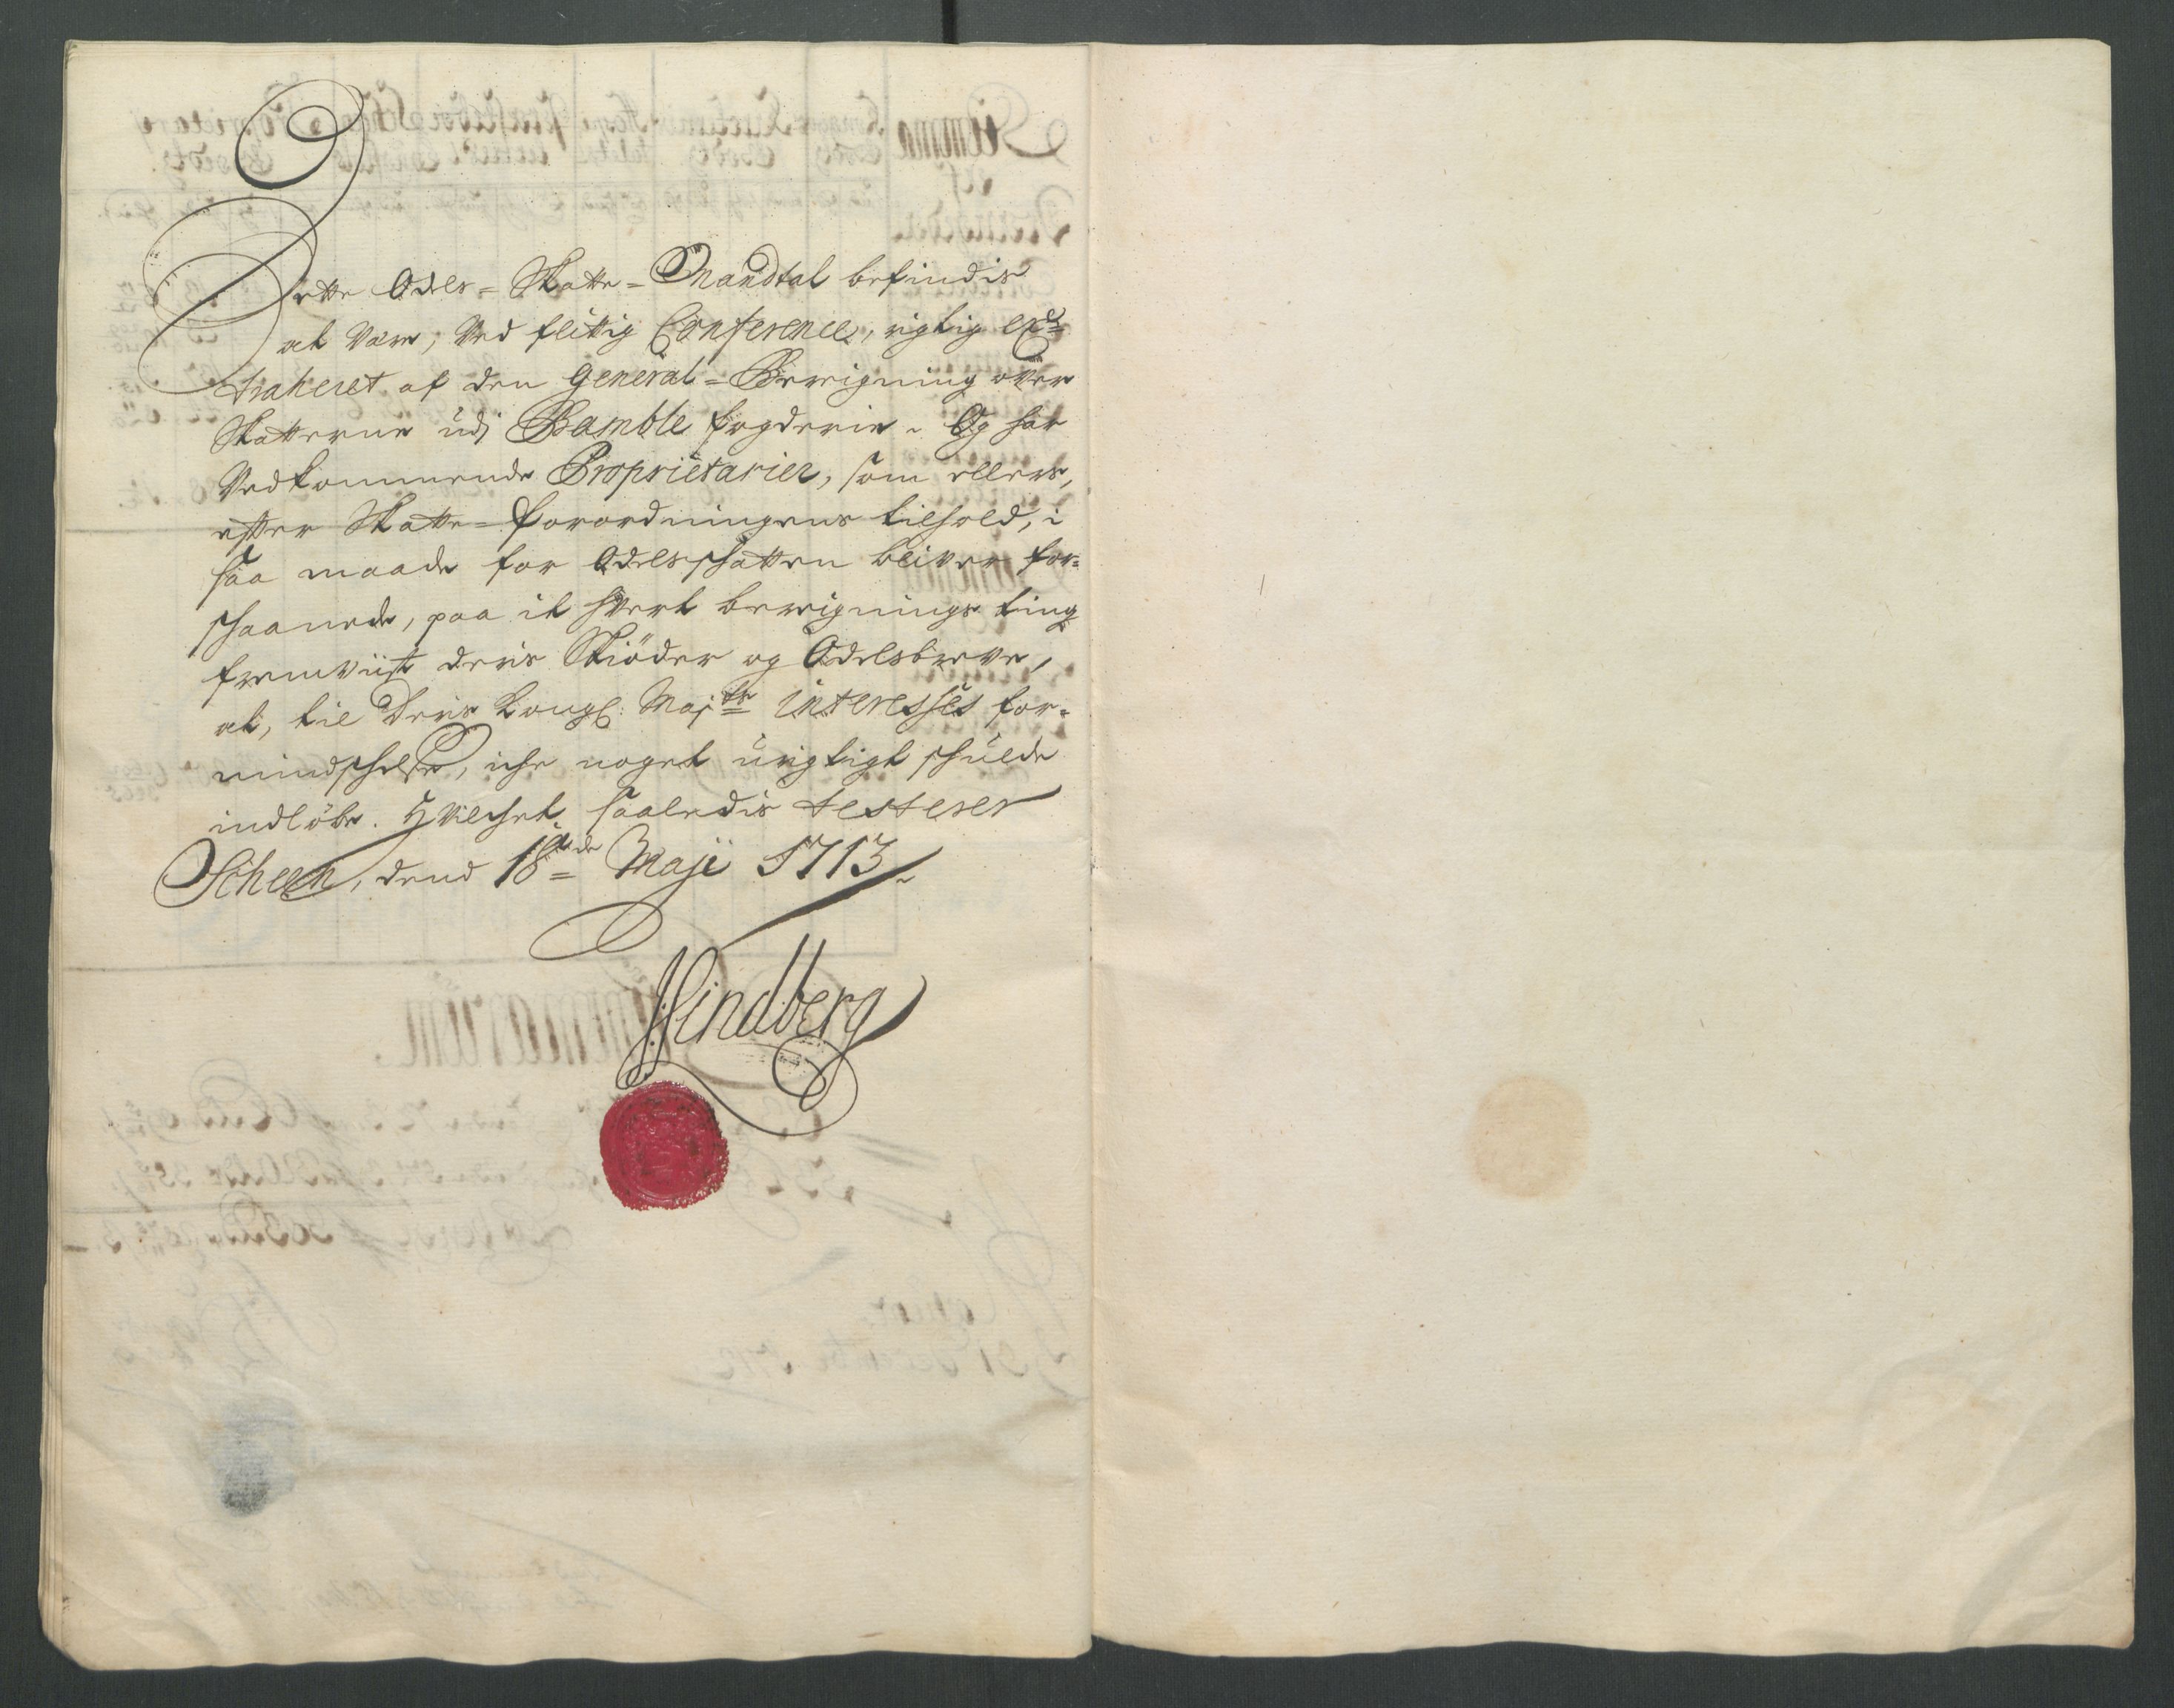 Dette Odels=Skatte=Mandtal befindis
at være, Ved flittig Conference, rigtig ex=
traheret af den General=Beregning over
Skatterne udj Bamble fogderie. Og har
Vedkommende Proprietarier, som ellers,
efter Skatte=forordningens tilhold, i
saa maade for Odelsschatten bliver for=
schaanede, paa it hvert beregnings ting
fremviist deris Skiöder og Odelsbreve,
at, til Deris Kongl: Majts interesses for=
mindschelse, iche noget urigtigt schulde
indlöbe. Hvilchet saaledis testerer
Scheen, dend 18de Maji 1713.
Lindberg